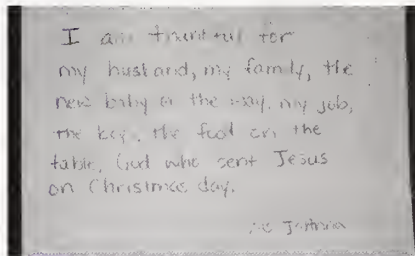 I am thankful for
my husband, my family, the
new baby on the way, my job,
the the food on the
table, God who sent Jesus
on Christmas day.